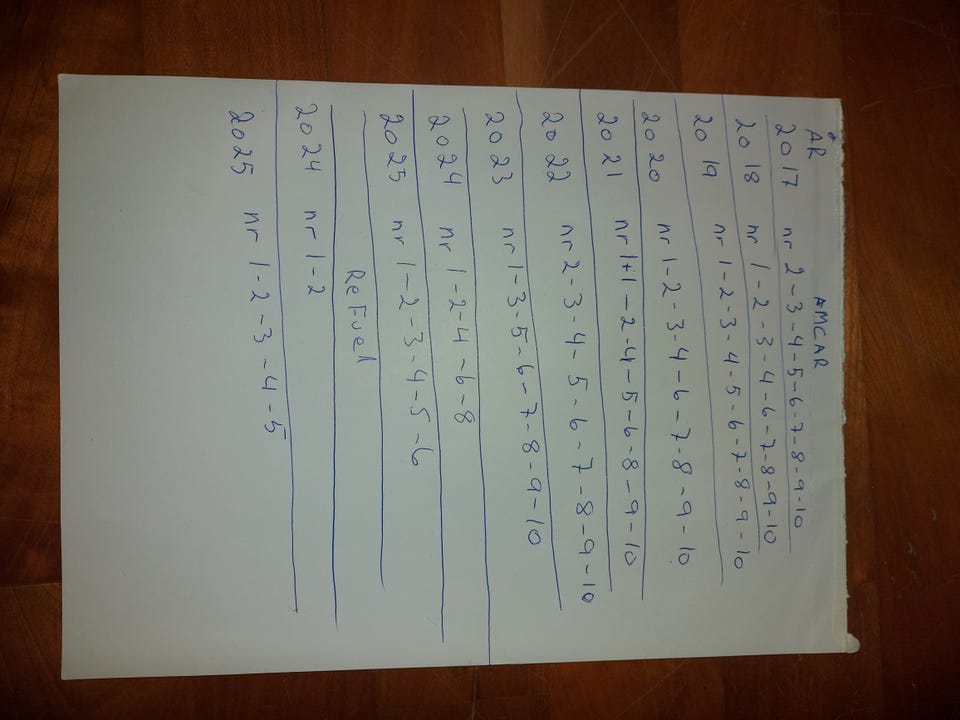 ÅR AMCAR
2017 nr 2-3-4-5-6-7-8-9-10
2018 nr 1-2-3-4-6-7-8-9-10
2019 nr 1-2-3-4-5-6-7-8-9-10
2020 nr 1-2-3-4-6-7-8-9-10
2021 nr 1+1-2-4-5-6-8-9-10
2022 nr 2-3-4-5-6-7-8-9-10
2023 nr 1-3-5-6-7-8-9-10
2024 nr 1-2-4-6-8
2025 nr 1-2-3-4-5-6
ReFuel
2024 nr 1-2
2025 nr 1-2-3-4-5